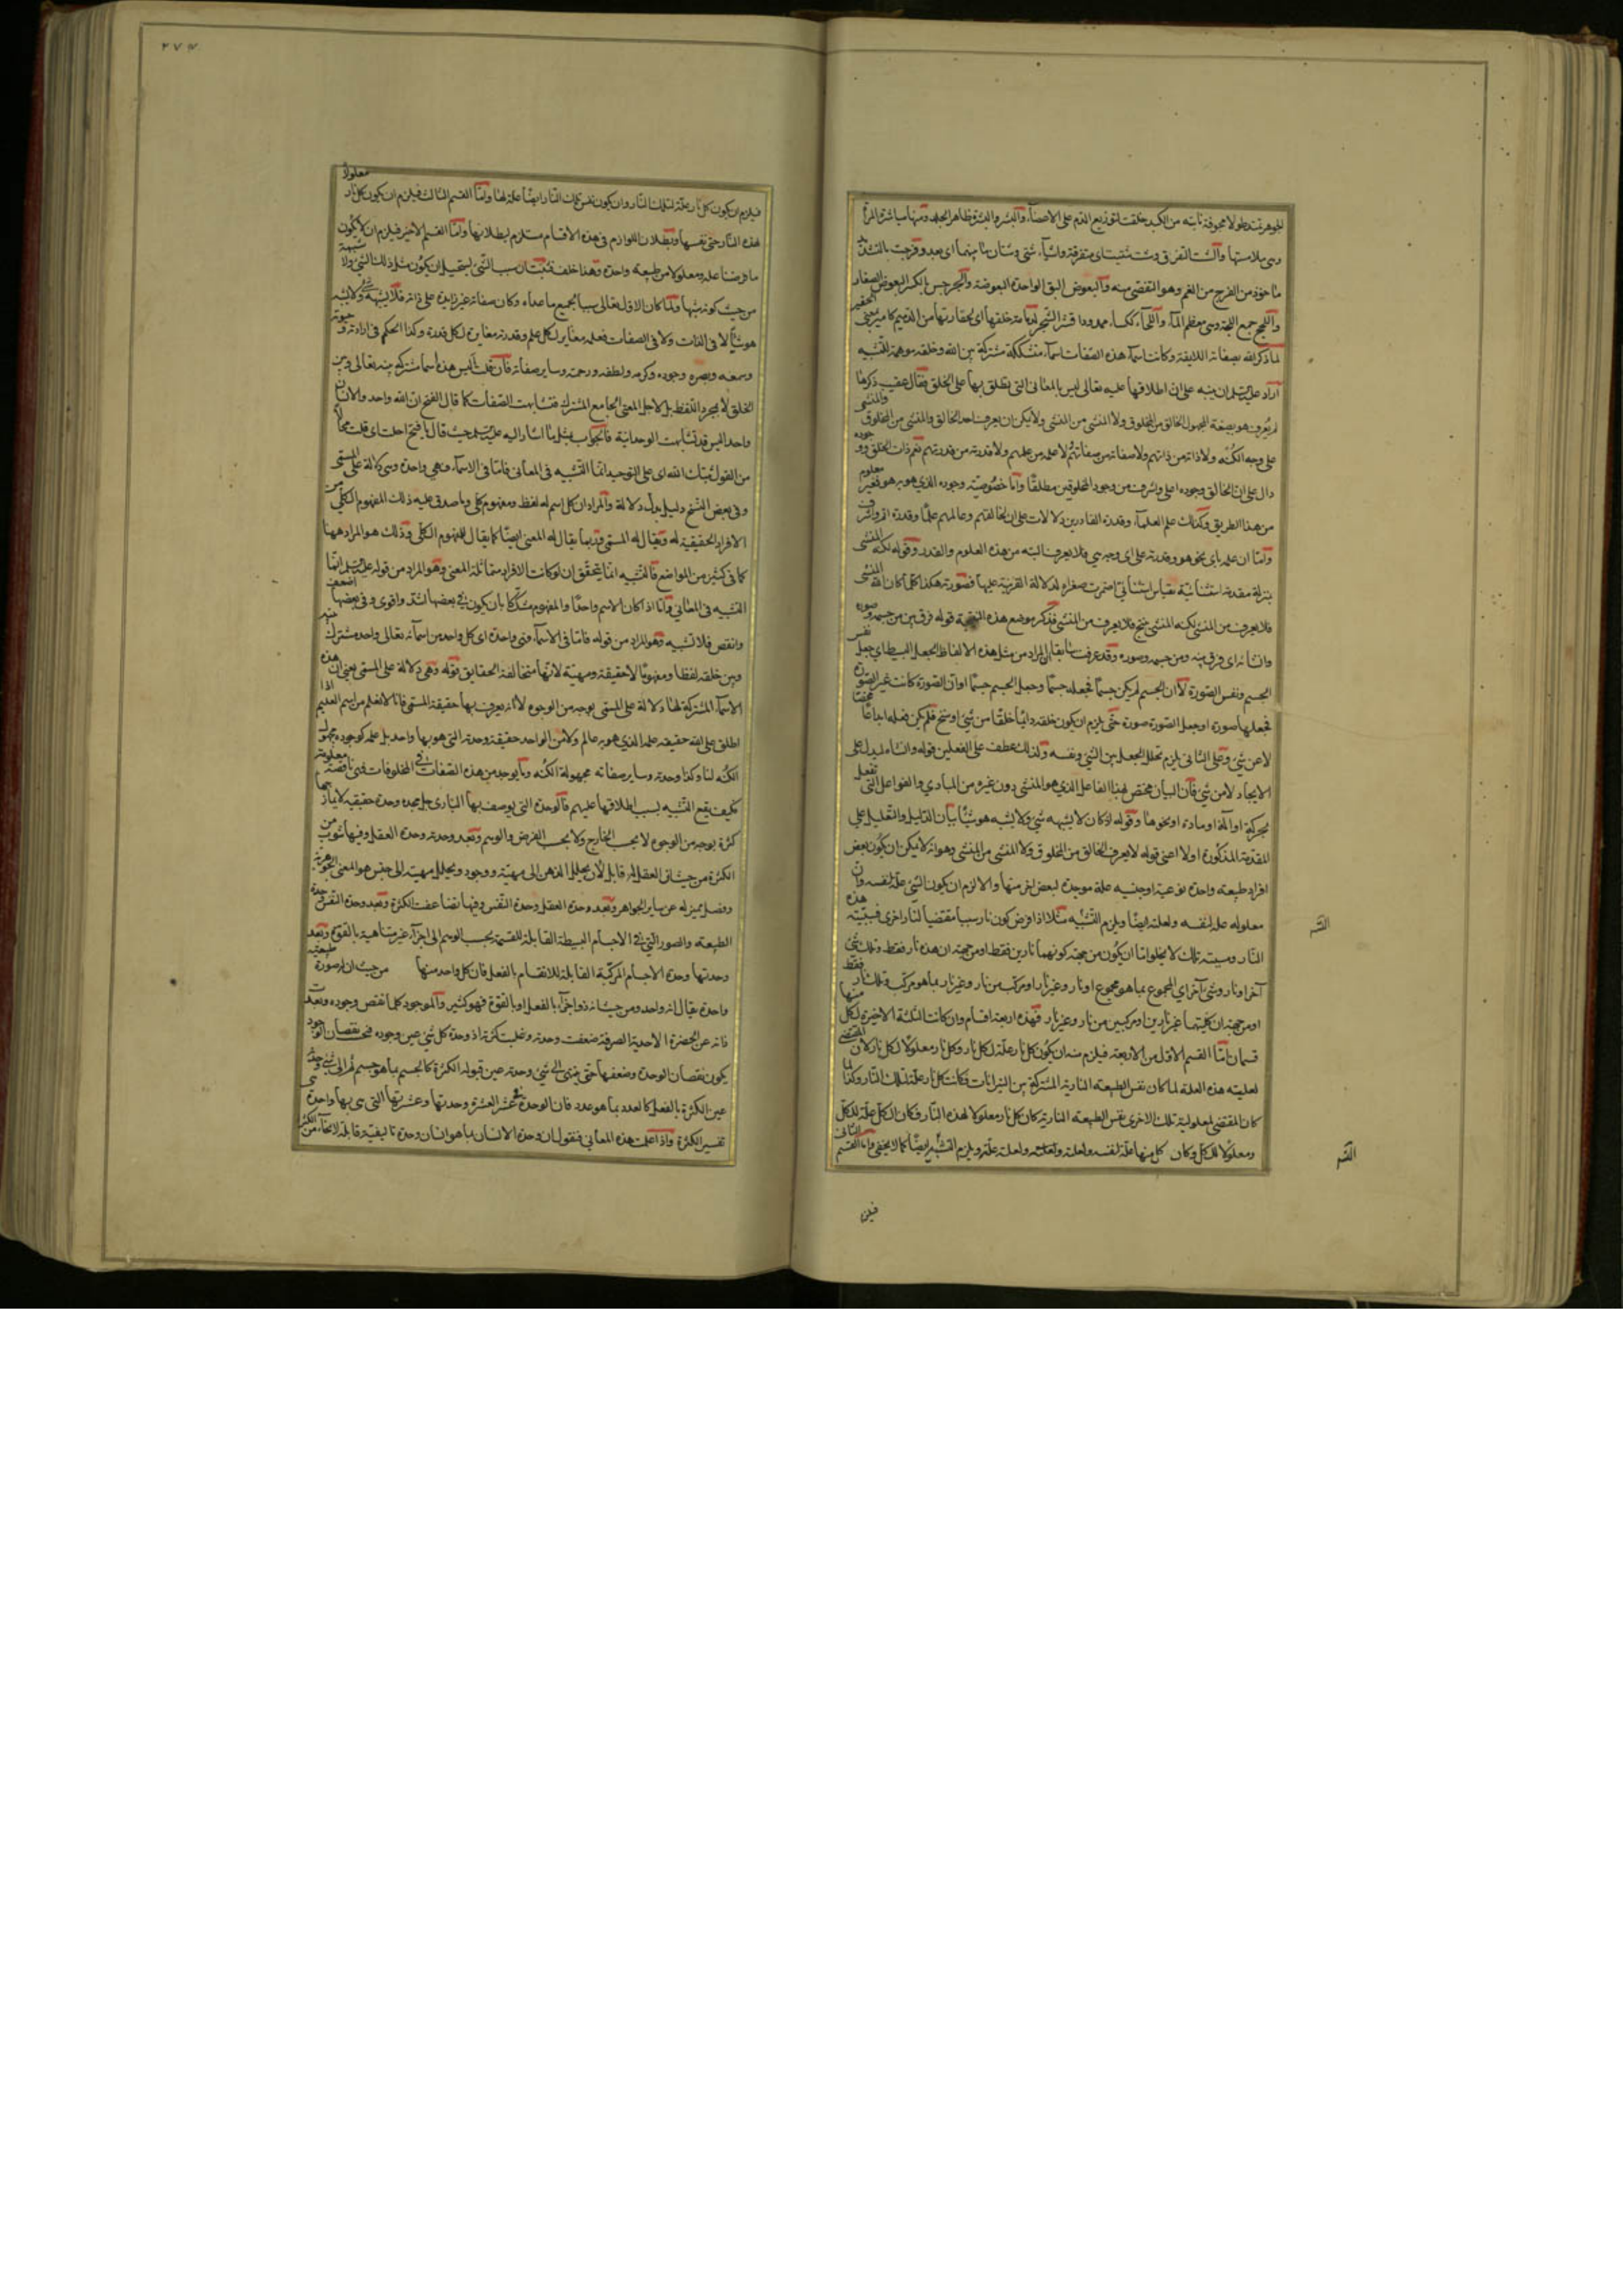 الجوهر تمتد طولا مجوفة نابته من الكبد خلقت لتوزيع الدم على الاعضآء والبشر والبشرة ظاهر الجلد ومنها مباشرة المرأة
وهى ملامستها والشت التفرق وشت تشتيتا اى متفرقة واشيآء شتى وشتان ما بينهما اى بعد وفرجت بالتشديد
ماخوذ من الفرج من الغم وهو التفصى منه والبعوض البق الواحدة البعوضة والجرجس بالكسر البعوض الصغار
واللجج جمع اللجة وهى معظم المآء واللحآء ككسآء ممدودا قشر الشجر لدمامة خلقها اى لحقارتها من الدميم كامير بمعنى الحقير
لما ذكر الله بصفاته اللايقة وكانت اسمآء هذه الصفات اسمآء متشككة مشتركة بين الله وخلقه موهمة للتشبيه
اراد عليه السلم ان ينبه على ان اطلاقها عليه تعالى ليس بالمعانى التى يطلق بها على الخلق فقال عقيب ذكرها
لم يعرف هو بصيغة المجهول الخالق من المخلوق ولا المنشئ من المنشئ ولا يمكن ان يعرف احد الخالق والمنشئ من المخلوق والمنشئ
على وجه الكنه ولا ذاته من ذاتهم ولا صفاته من صفاتهم لا علمه من علمهم ولا قدرته من قدرتهم نعم ذات الخلق ووجوده
دال على ان الخالق وجوده اعلى واشرف من وجود المخلوقين مطلقا واما خصوصية وجوده الذي هو به هو فغير معلوم
من هذا الطريق وكذلك علم العلمآء وقدرة القادرين دلالات على ان لخالقهم وعالمهم علما وقدرة اتم واشرف
واما ان علمه باى نحو هو وقدرته على اى وجه هى فلا يعرف البتة من هذه العلوم والقدر وقوله لكنه المنشئ
بمنزلة مقدمة استثنائية لقياس استثنائى اضمرت صغراه لدلالة القرينة عليها فصورته هكذا كلما كان الله المنشئ
فلا يعرف من المنشئ لكنه المنشئ ينتج فلا يعرف من المنشئ فذكر موضع هذه النتيجة قوله فرق بين من جسمه وصوره
وانشأه اى فرق بينه ومن جسمه وصوره وقد عرفت سابقا ان المراد من مثل هذه الالفاظ الجعل البسيط اى جعل نفس
الجسم ونفس الصورة لا ان الجسم لم يكن جسما فجعله جسما وجعل الجسم جسما او ان الصورة كانت غير الصورة
فجعلها صورة او جعل الصورة صورة حتى يلزم ان يكون خلقه دائما خلقا من شئ او سنخ فلم يكن فعله ابداعا محضا
لا عن شئ وعلى الثانى يلزم تخلل الجعل بين الشئ ونفسه ولذلك عطف على الفعلين قوله وانشأه ليدل على
الايجاد لا من شئ فان البيان مختص لهذا الفاعل الذي هو المنشئ دون غيره من المبادي والفواعل التى تفعل
بحركة او الة او مادة او نحوها وقوله اذ كان لا يشبهه شئ ولا يشبه هو شيئا بيان الدليل والتعليل على
المقدمة المذكورة اولا اعنى قوله لا يعرف الخالق من المخلوق ولا المنشئ من المنشئ وهو انه لا يمكن ان يكون بعض
افراد طبيعة واحدة نوعية او جنسية علة موجدة لبعض اخر منها والا لزم ان يكون الشئ علة لنفسه وان
معلوله علة لنفسه ولعلته ايضا ويلزم التشبيه مثلا اذا فرض كون نار سببا مقتضيا لنار اخرى فسببية هذه
النار ومسببية تلك لا يخلو اما ان يكون من جهة كونهما نارين فقط او من جهة ان هذه نار فقط وتلك شئ
آخر او نار وشئ آخر اي المجموع بما هو مجموع او نار وغير نار او مركب من نار وغير نار بما هو مركب وتلك نار فقط
او من جهة ان كلتيهما غير نارين او مركبين من نار وغير نار فهذه اربعة اقسام وان كانت الثلثة الاخيرة لكل منها
قسمان اما القسم الاول من الاربعة فيلزم منه ان يكون كل نار علة لكل نار وكل نار معلولا لكل نار لان المقتضى
لعلية هذه العلة لما كان نفس الطبيعة النارية المشتركة بين النيرانات فكانت كل نار علة لتلك النار وكذا لما
كان المقتضى لمعلولية تلك الاخرى نفس الطبيعة النارية كان كل نار معلولا لهذه النار فكان الكل علة للكل
ومعلولا للكل وكان كل منها علة لنفسه ولعلته ولعلة علته ويلزم التشبيه ايضا كما لا يخفى واما القسم الثانى
فيلزم
٢٧٣
فيلزم ان يكون كل نار علة لتلك النار وان يكون نفس تلك النار ايضا علة لها واما القسم الثالث فيلزم ان يكون كل نار معلولا
لهذه النار حتى نفسها وبطلان اللوازم فى هذه الاقسام مستلزم لبطلانها واما القسم الاخير فيلزم ان لا يكون
ما فرضنا علة ومعلولا من طبيعة واحدة وهذا خلف فثبت ان سبب الشئ يستحيل ان يكون مثل ذلك الشئ ولا شبيهه
من حيث كونه شبيها ولما كان الاول تعالى سببا لجميع ما عداه وكان صفاته غير زايدة على ذاته فلا يشبهه شئ ولا يشبه
هو شيئا لا فى الذات ولا فى الصفات فعلمه مغاير لكل علم وقدرته مغايرة لكل قدرة وكذا الحكم فى ارادته وحيوته
وسمعه وبصره وجوده وكرمه ولطفه ورحمته وساير صفاته فان قلت اليس هذه اسما مشتركة بينه تعالى وبين
الخلق لا بمجرد اللفظ بل لاجل المعنى الجامع المشترك فتشابهت الصفات كما قال الفتح ان الله واحد والانسان
واحد اليس قد تشابهت الوحدانية فالجواب بمثل ما اشار اليه عليه السلم حيث قال يا فتح احلت اى قلت محالا
من القول ثبتك الله اى على التوحيد انما التشبيه فى المعانى فاما فى الاسمآء فهى واحدة وهى دلالة على المسمى
وفى بعض النسخ دليل بدل دلالة والمراد ان كل اسم له لفظ ومفهوم كلى وما صدق عليه ذلك المفهوم الكلى من
الافراد الحقيقية له ويقال له المسمى وربما يقال له المعنى ايضا كما يقال للمفهوم الكلى وذلك هو المراد ههنا
كما فى كثير من المواضع فالتشبيه انما يتحقق ان لو كانت الافراد متماثلة المعنى وهو المراد من قوله عليه السلم انما
التشبيه فى المعانى واما اذا كان الاسم واحدا والمفهوم مشككا بان يكون فى بعضها اشد واقوى وفى بعضها اضعف
وانقص فلا تشبيه وهو المراد من قوله فاما فى الاسمآء فهى واحدة اى كل واحد من اسمآئه تعالى واحد مشترك بينه
وبين خلقه لفظا ومفهوما لا حقيقة ومهية لانها متخالفة الحقايق قوله وهى دلالة على المسمى يعنى ان هذه
الاسمآء المشتركة لها دلالة على المسمى بوجه من الوجوه لا انه يعرف بها حقيقة المسمى فانا لا نعلم من اسم العليم اذا
اطلق على الله حقيقة علمه الذي هو به عالم ولا من الواحد حقيقة وحدته التى هو بها واحد بل علمه كوجوده مجهول
الكنه لنا وكذا وحدته وساير صفاته مجهولة الكنه وما يوجد من هذه الصفات فى المخلوقات فهى ناقصة معلومة
فكيف يقع التشبيه بسبب اطلاقها عليهم فالوحدة التى يوصف بها البارى جل مجده وحدة حقيقية لا يمازجها
كثرة بوجه من الوجوه لا بحسب الخارج ولا بحسب الفرض والوهم وبعد وحدته وحدة العقل وفيها شوب من
الكثرة من حيث ان العقل قابل لان يحلله الذهن الى مهية ووجود ويحلل مهيته الى جنس هو المعنى الجوهرية
وفصل مميز له عن ساير الجواهر وبعد وحدة العقل وحدة النفس وفيها تضاعف الكثرة وبعد وحدة النفس وحدة
الطبيعة والصور التى فى الاجسام البسيطة القابلة للقسمة بحسب الوهم الى اجزآء غير متناهية بالقوة وبعد
وحدتها وحدة الاجسام المركبة القابلة للانقسام بالفعل فان كل واحد منها من حيث ان له صورة طبيعية
واحدة يقال انه واحد ومن حيث انه ذو اجزآء بالفعل او بالقوة فهو كثير والموجود كلما نقص وجوده وبعدت
ذاته عن الحضرة الاحدية الصرفة ضعفت وحدته وغلبت كثرته اذ وحدة كل شئ عين وجوده فبحسب نقصان الوجود
يكون نقصان الوحدة وضعفها حتى ينتهى الى شئ وحدته عين قبوله الكثرة كالجسم بما هو جسم ثم الى شئ وحدته
عين الكثرة بالفعل كالعدد بما هو عدد فان الوحدة فى عشر العشرة وحدتها وعشرتها التى هى بها واحدة هى
نفس الكثرة واذا علمت هذه المعانى فنقول ان وحدة الانسان بما هو انسان وحدة تاليفية قابلة لانحآء من الكثرة